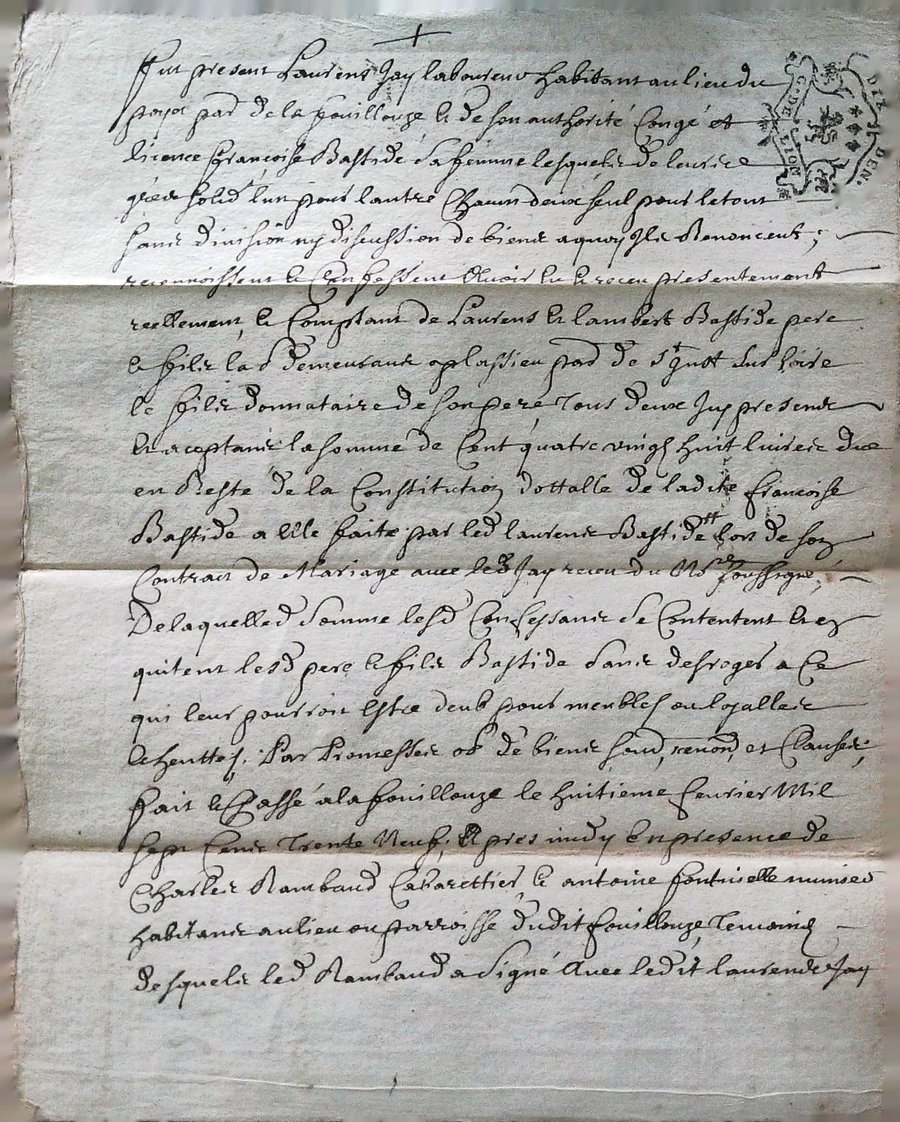 Fut present Laurens Jay laboureur habitant au lieu du
par. de la fouillouze & de son authorité Congé et
licence Francoise Bastide sa femme lesquels de leur
gréz solid. l'un pour lautre Chacun deux seul pour le tout
sans division ny discussion de biens a quoy Ils Renoncent;
reconnoissent & Confessent Avoir Eu & receu presentement
reellement & Comptant de Laurens & lambert Bastide pere
& fils lad. demeurant par. de St. Just Sur loire
le fils donnataire de son pere Tous deux Icy presents
& aceptants la somme de Cent quatre vingt huit livres due
en Reste de la Constitution dottalle de ladite francoise
Bastide a Elle faite par led laurens Bastide lors de son
Contract de Mariage avec led Jay receu du Nore soussigné;
De laquelle d. somme lesd Confessants se Contentent & en
quitent lesd pere & fils Bastide sans desroger a Ce
qui leur pourroit Estre deub pour meubles ou
. Par Promesses ob. de biens soud, renond, et Clauses;
fait & Passé a la fouillouze le huitieme fevrier Mil
sept Cents Trente Neuf, Apres midy En presence de
Charles Rambaud Cabarettier & antoine
habitans au lieu ou parroisse dudit fouillouze, Temoins
desquels led Rambaud a Signé Avec ledit laurends Jay
G. DE LION
DIX DEN.